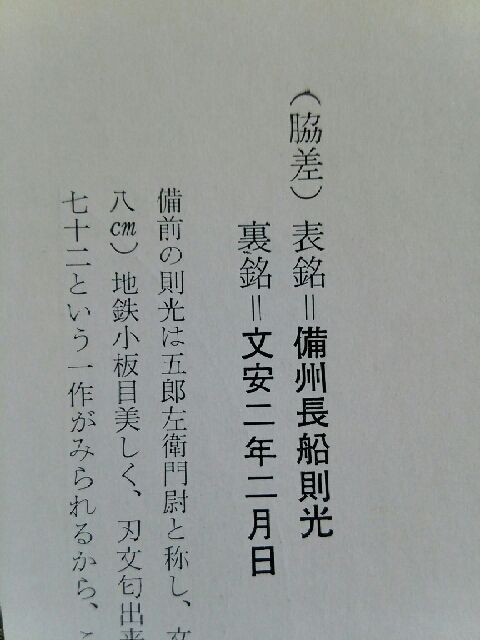 （脇差）表銘＝備州長船則光
裏銘＝文安二年二月日
備前の則光は五郎左衛門尉と称し、文
八cm）地鉄小板目美しく、刃文匂出来
七十二という一作がみられるから、こ